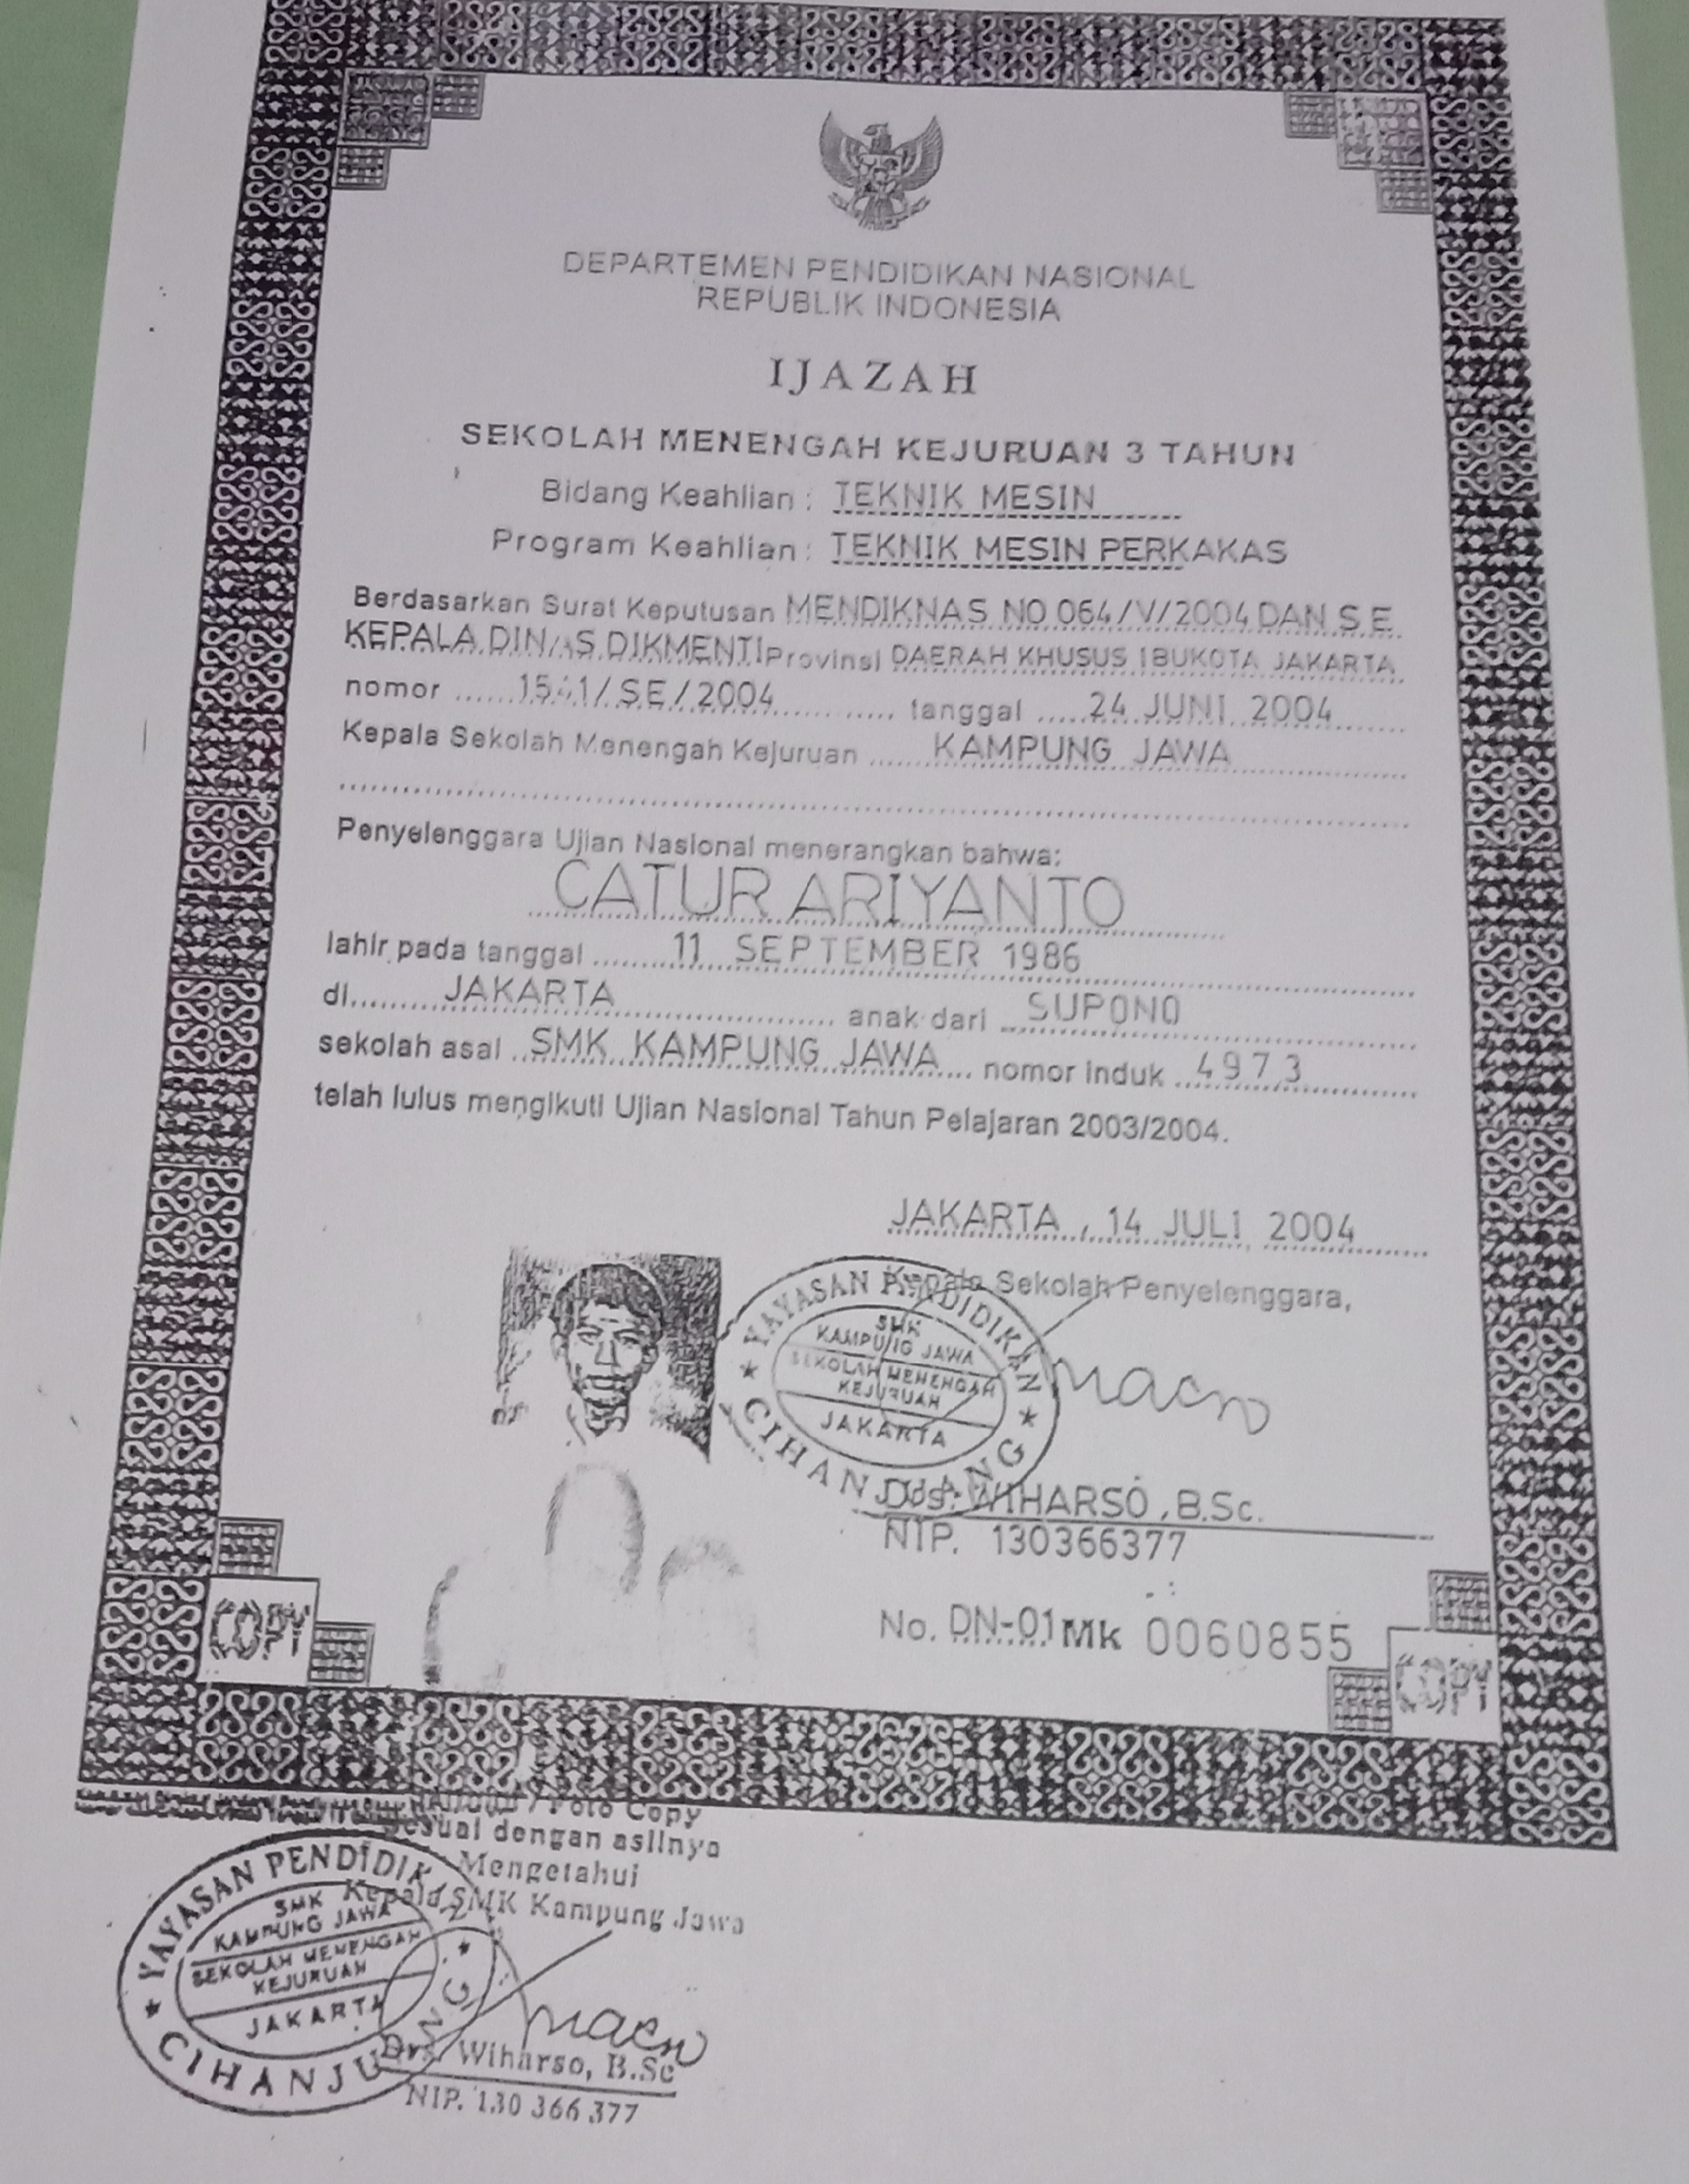 DEPARTEMEN PENDIDIKAN NASIONAL
REPUBLIK INDONESIA
IJAZAH
SEKOLAH MENENGAH KEJURUAN 3 TAHUN
Bidang Keahlian : TEKNIK MESIN
Program Keahlian : TEKNIK MESIN PERKAKAS
Berdasarkan Surat Keputusan MENDIKNAS NO 064/V/2004 DAN S E
KEPALA DINAS DIKMENTI Provinsi DAERAH KHUSUS IBUKOTA JAKARTA
nomor ...... 1541/SE/2004 ...... tanggal ..... 24 JUNI 2004
Kepala Sekolah Menengah Kejuruan ...... KAMPUNG JAWA
Penyelenggara Ujian Nasional menerangkan bahwa:
CATUR ARIYANTO
lahir pada tanggal ........ 11 SEPTEMBER 1986
di ........ JAKARTA ........ anak dari SUPONO
sekolah asal SMK KAMPUNG JAWA nomor induk 4973
telah lulus mengikuti Ujian Nasional Tahun Pelajaran 2003/2004.
JAKARTA , 14 JULI 2004
Kepala Sekolah Penyelenggara,
YAYASAN PENDIDIKAN
SMK
KAMPUNG JAWA
SEKOLAH MENENGAH
KEJURUAN
JAKARTA
CIHANJUANG
Drs. WIHARSO , B.Sc.
NIP. 130366377
No. DN-01 Mk 0060855
COPY
COPY
/ Foto Copy
Sesuai dengan aslinya
Mengetahui
Kepala SMK Kampung Jawa
YAYASAN PENDIDIKAN
SMK
KAMPUNG JAWA
SEKOLAH MENENGAH
KEJURUAN
JAKARTA
CIHANJUANG
Drs. Wiharso, B.Sc
NIP. 130 366 377